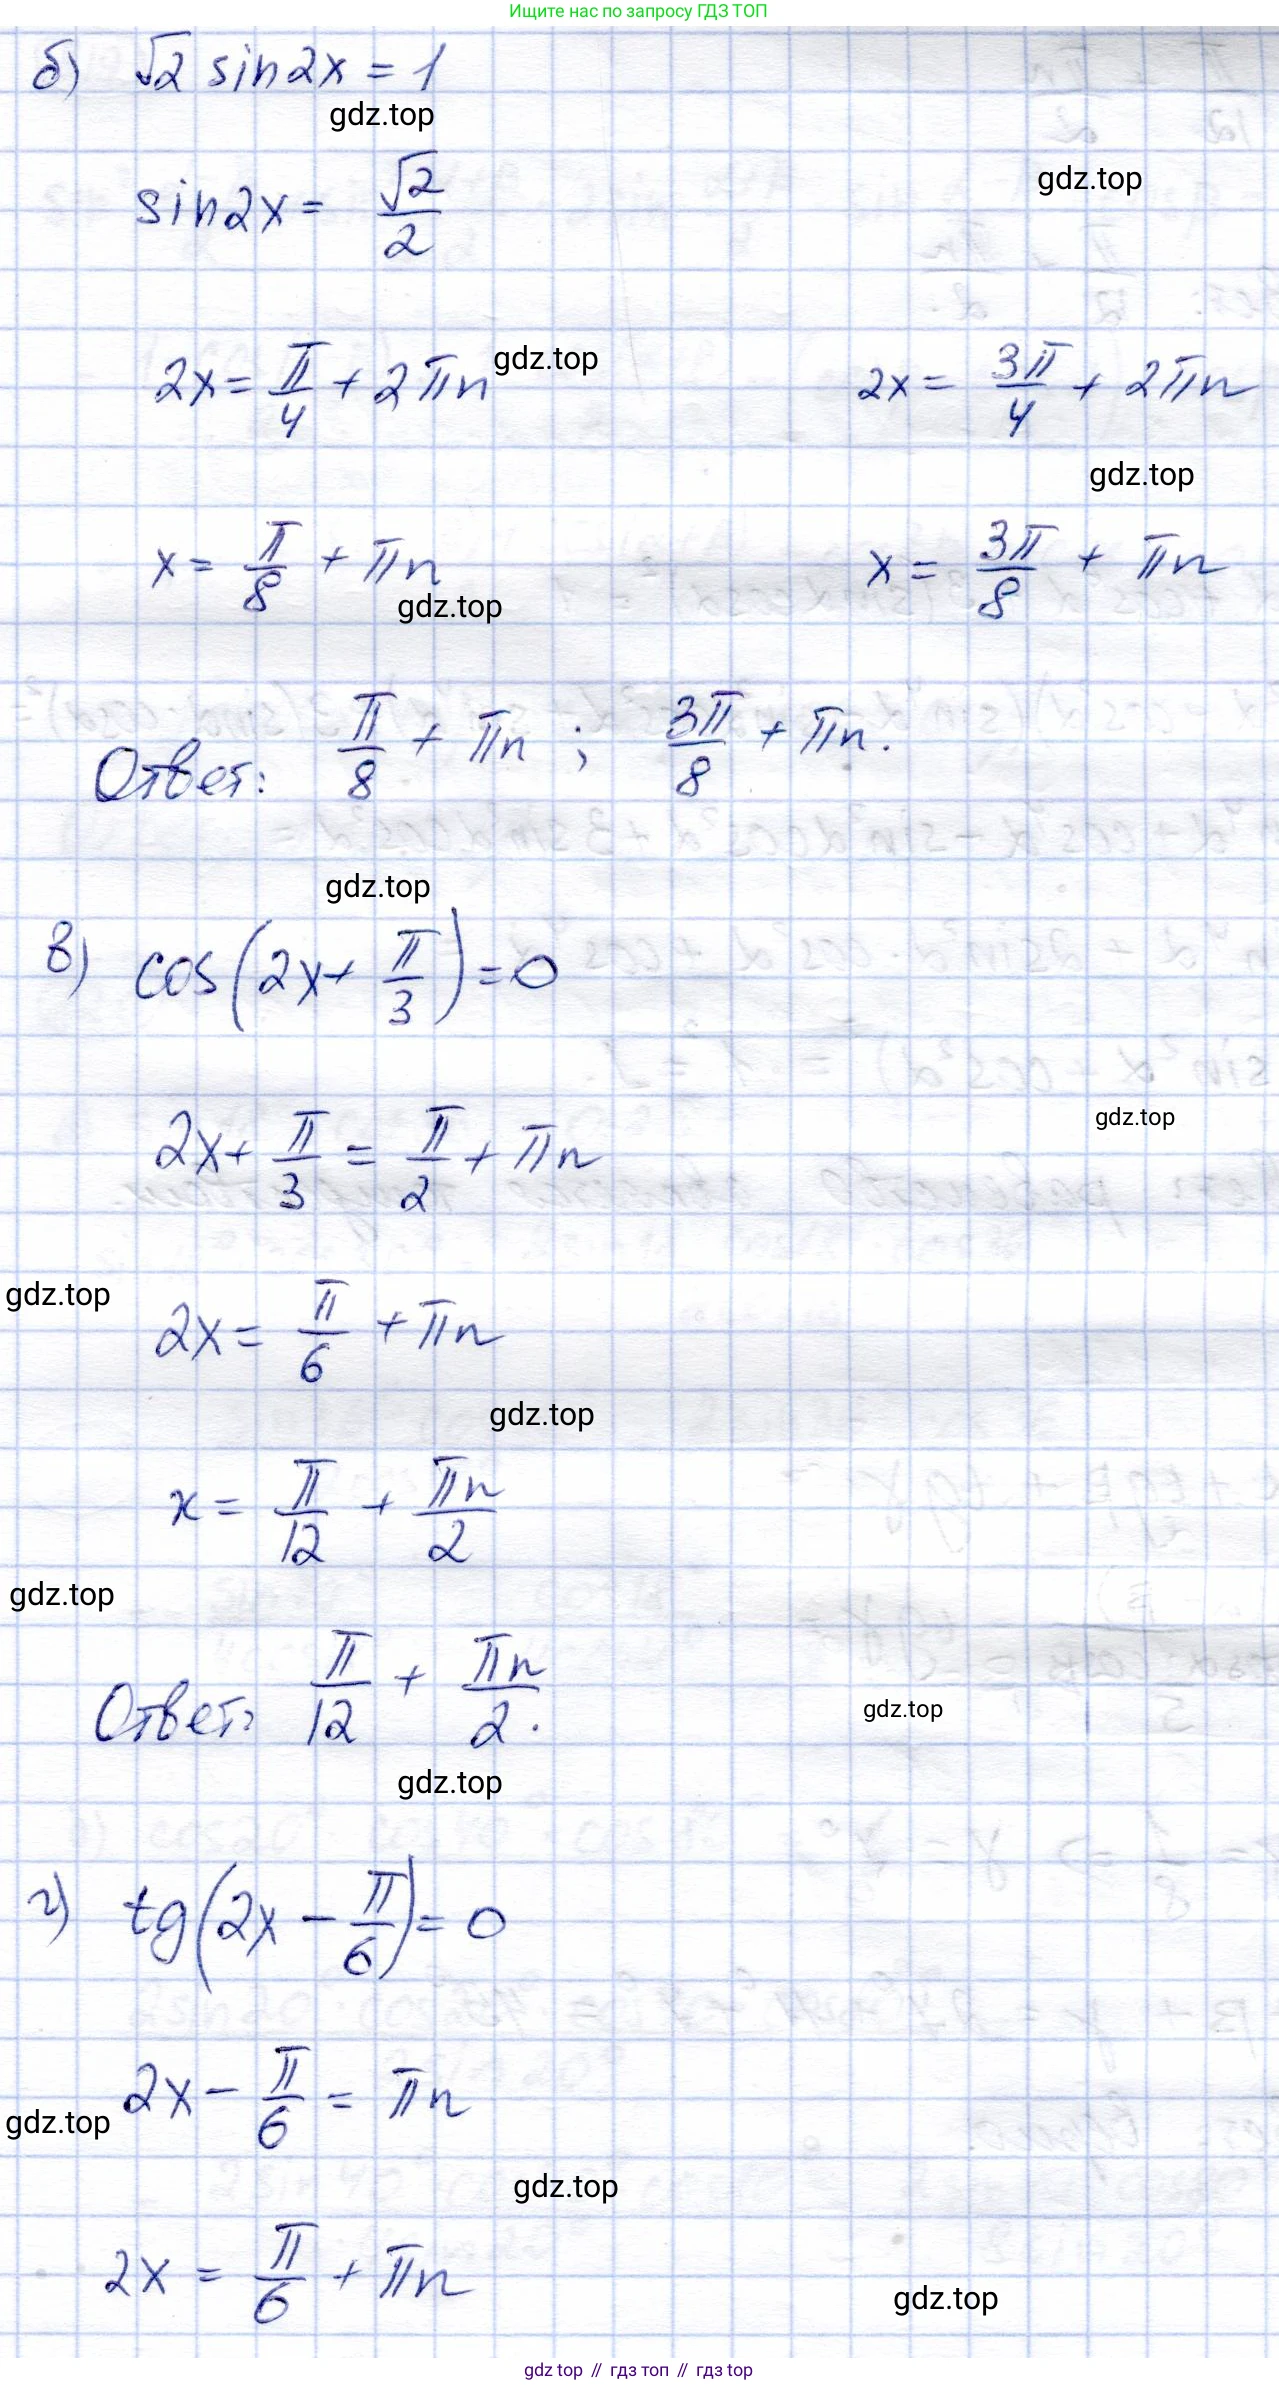 Ищите нас по запросу ГДЗ ТОП
б) √2 sin2x = 1
gdz.top
gdz.top
sin2x = √2/2
2x = π/4 + 2πn gdz.top 2x = 3π/4 + 2πn
gdz.top
x = π/8 + πn x = 3π/8 + πn
gdz.top
Ответ: π/8 + πn ; 3π/8 + πn.
gdz.top
в) cos(2x + π/3) = 0
gdz.top
2x + π/3 = π/2 + πn
gdz.top
2x = π/6 + πn
gdz.top
x = π/12 + πn/2
gdz.top
Ответ: π/12 + πn/2.
gdz.top
gdz.top
г) tg(2x − π/6) = 0
2x − π/6 = πn
gdz.top
gdz.top
2x = π/6 + πn
gdz.top
gdz top // гдз топ // гдз top